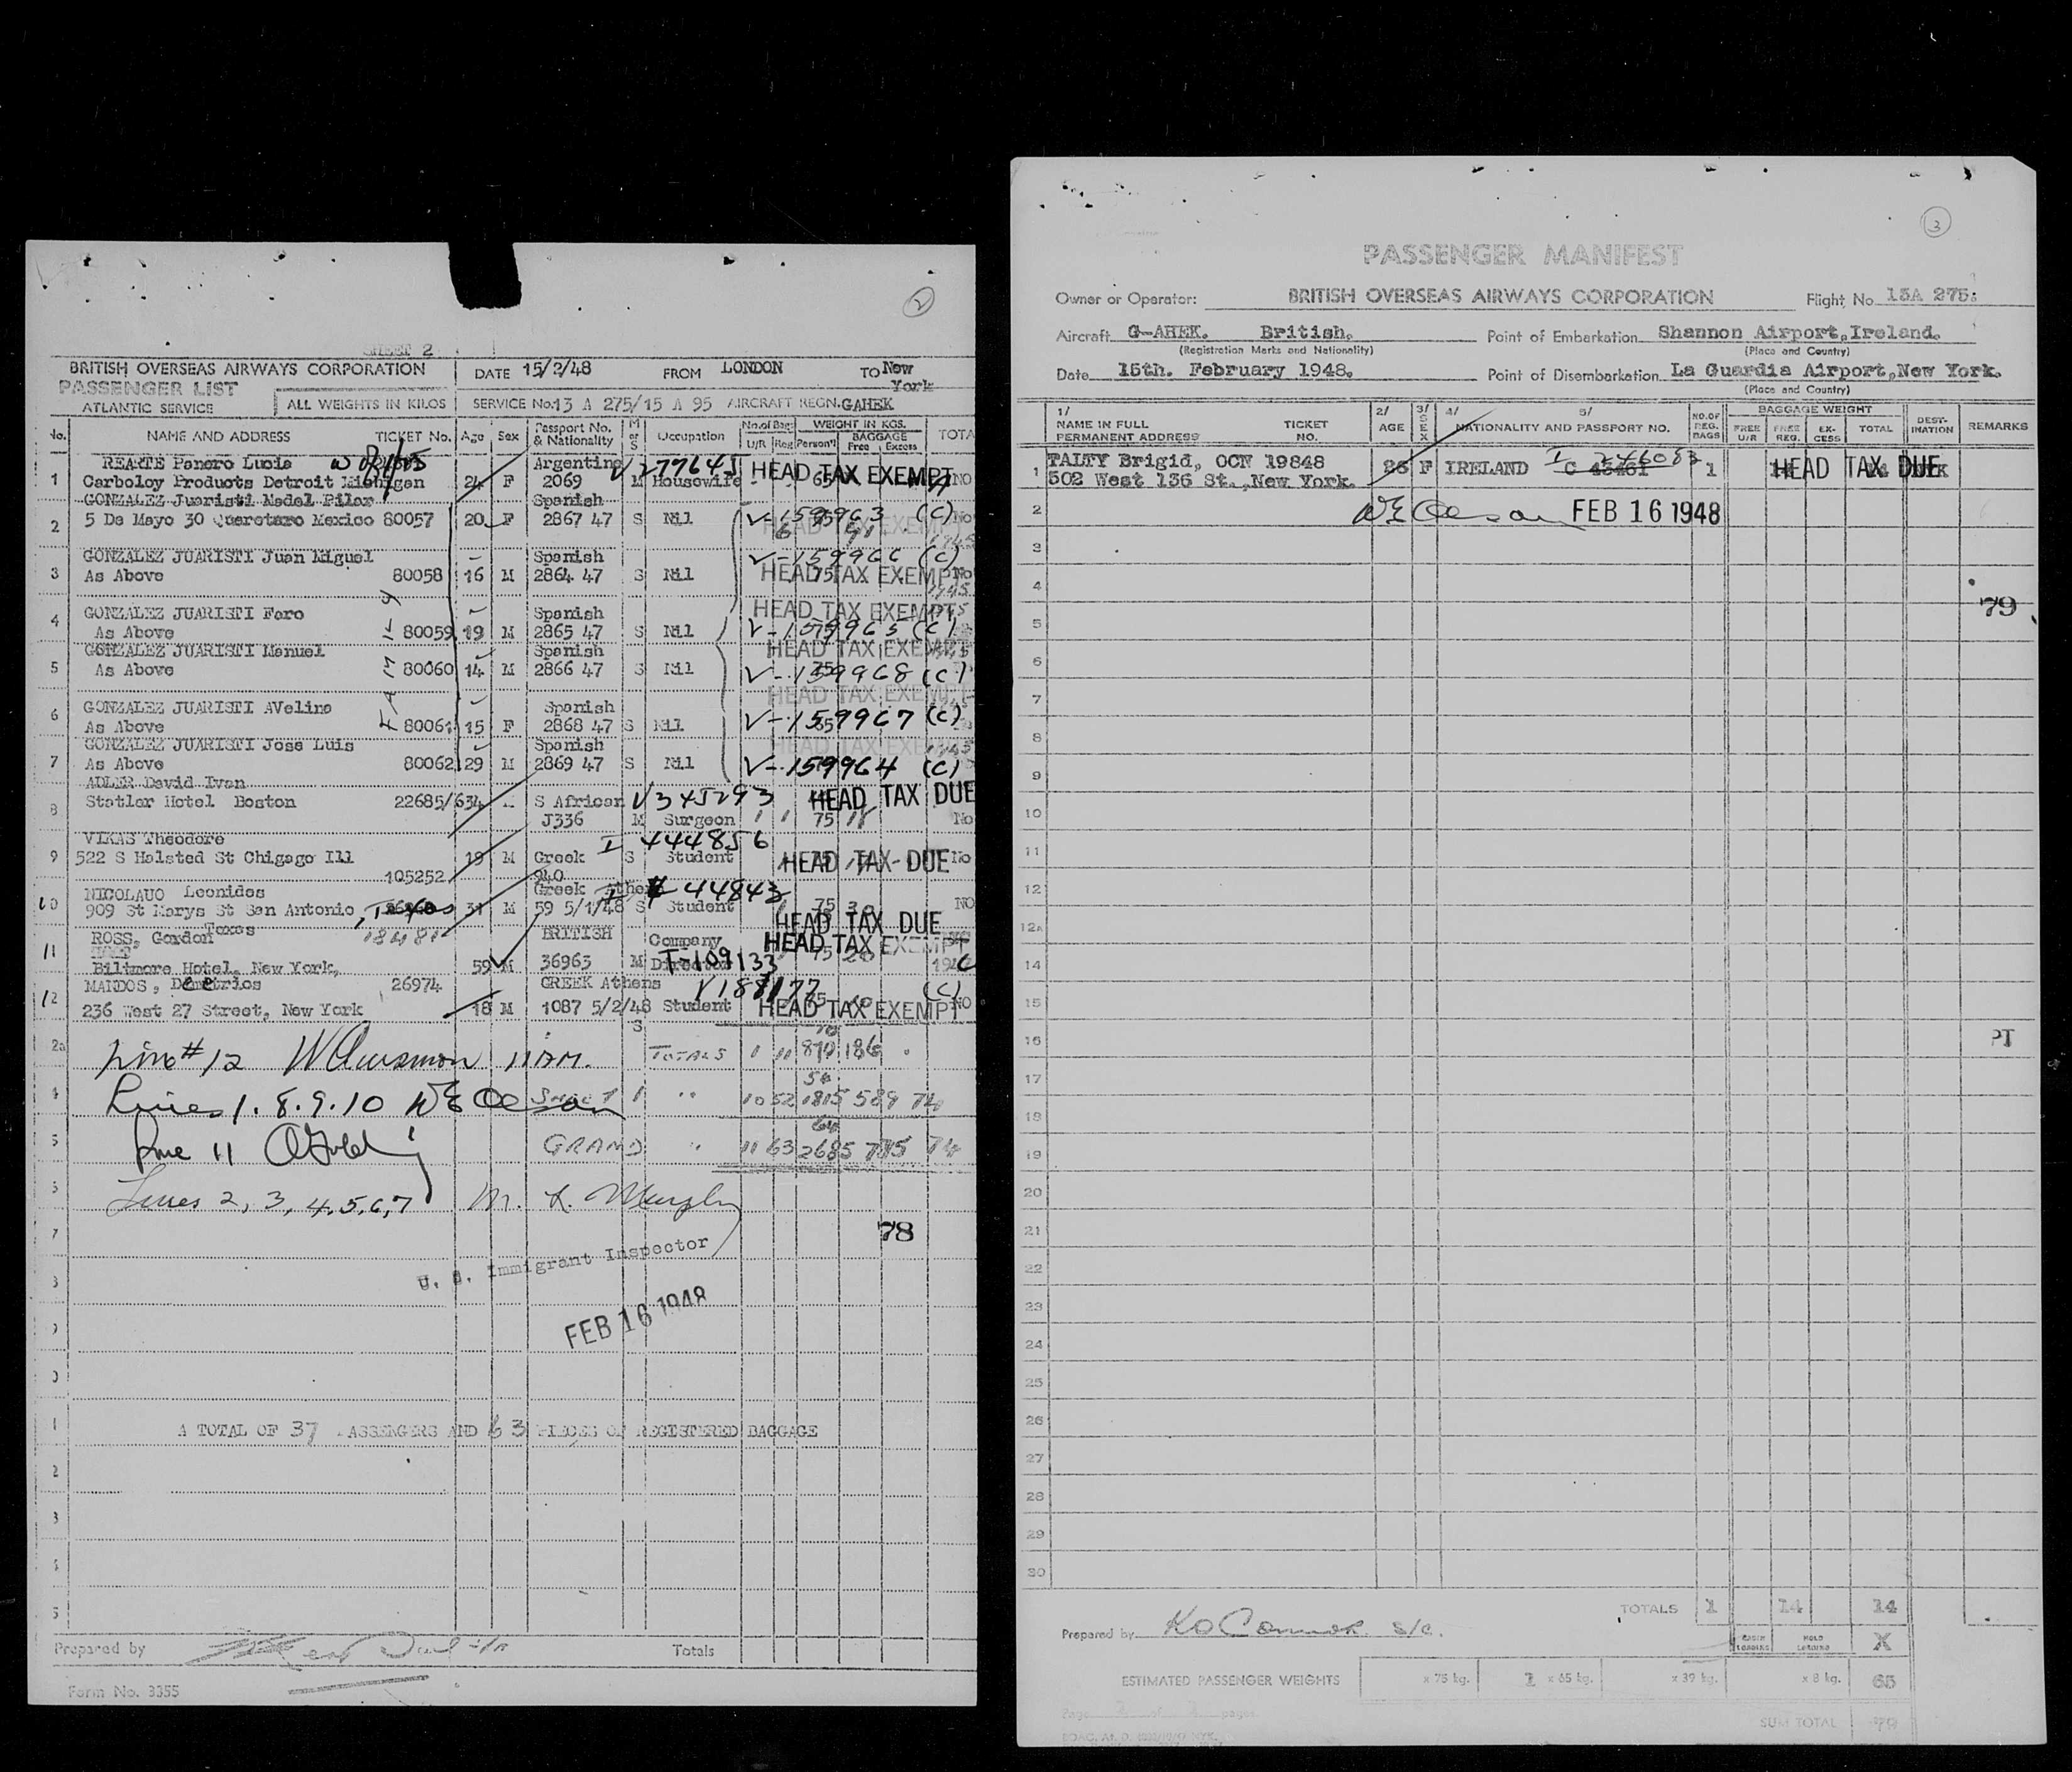 2
SHEET 2
BRITISH OVERSEAS AIRWAYS CORPORATION
PASSENGER LIST
ATLANTIC SERVICE
ALL WEIGHTS IN KILOS
DATE 15/2/48 FROM LONDON TO New York
SERVICE No. 13 A 275/15 A 95 AIRCRAFT REGN. GAHEK
No. NAME AND ADDRESS TICKET No. Age Sex Passport No. & Nationality M or S Occupation No. of Bag U/R Reg WEIGHT IN KGS. Person'l BAGGAGE Free Excess TOTA
REARTE Panero Lucia Argentine V 277645 HEAD TAX EXEMPT
1 Carboloy Products Detroit Michigan 24 F 2069 M Housewife NO
GONZALEZ Juaristi Madel Pilar Spanish
2 5 De Mayo 30 Queretaro Mexico 80057 20 F 2867 47 S Nil V-159963 (C)
HEAD TAX EXEMPT
GONZALEZ JUARISTI Juan Miguel Spanish V-159966 (C)
3 As Above 80058 16 M 2864 47 S Nil HEAD TAX EXEMPT No
GONZALEZ JUARISTI Faro Spanish HEAD TAX EXEMPT
4 As Above 80059 19 M 2865 47 S Nil V-159965 (C)
GONZALEZ JUARISTI Manuel Spanish HEAD TAX EXEMPT
5 As Above 80060 14 M 2866 47 S Nil V-159968 (C)
HEAD TAX EXEMPT
FAMILY
GONZALEZ JUARISTI AVelina Spanish
6 As Above 80061 15 F 2868 47 S Nil V-159967 (C)
GONZALEZ JUARISTI Jose Luis Spanish HEAD TAX EXEMPT
7 As Above 80062 29 M 2869 47 S Nil V-159964 (C)
ADLER David Ivan
8 Statler Hotel Boston 22685/6 34 S African V345293 HEAD TAX DUE
J336 M Surgeon 1 1 75 18 No
VIKAS Theodore I 444856
9 522 S Halsted St Chigago Ill 19 M Greek S Student HEAD TAX DUE No
105252 940
NICOLAUO Leonidos Greek Athens 44843
10 909 St Marys St San Antonio, Texas 31 M 59 5/1/48 S Student 75 NO
Texas 18481 HEAD TAX DUE
ROSS, Gordon BRITISH Company HEAD TAX EXEMPT
11 Biltmore Hotel, New York, 59 M 36963 M Director T-109133
MANDOS, Demetrios 26974 GREEK Athens V188177 (C)
12 236 West 27 Street, New York 18 M 1087 5/2/48 Student HEAD TAX EXEMPT NO
S
Line #12 11 AM. TOTALS 1 11 870 186
Lines 1. 8. 9. 10 W E Oleson Sheet 1 " 10 52 1815 589 74
Line 11 GRAND " 11 63 2685 775 74
Lines 2, 3, 4, 5, 6, 7 M. L. Murphy
78
U. S. Immigrant Inspector
FEB 16 1948
A TOTAL OF 37 PASSENGERS AND 63 PIECES OF REGISTERED BAGGAGE
Prepared by Totals
Form No. 3355
3
PASSENGER MANIFEST
Owner or Operator: BRITISH OVERSEAS AIRWAYS CORPORATION Flight No. 13A 275.
Aircraft G-AHEK. British. Point of Embarkation Shannon Airport, Ireland.
(Registration Marks and Nationality) (Place and Country)
Date 15th. February 1948. Point of Disembarkation La Guardia Airport, New York.
(Place and Country)
1/ NAME IN FULL PERMANENT ADDRESS TICKET NO. 2/ AGE 3/ SEX 4/ 5/ NATIONALITY AND PASSPORT NO. NO. OF REG. BAGS BAGGAGE WEIGHT FREE U/R FREE REG. EXCESS TOTAL DESTINATION REMARKS
1 TALTY Brigid, OCN 19848 26 F IRELAND C 45461 I 246083 1 HEAD TAX DUE
502 West 136 St., New York.
2 W E Oleson FEB 16 1948
3
4
79
5
6
7
8
9
10
11
12
12A
14
15
16
PT
17
18
19
20
21
22
23
24
25
26
27
28
29
30
TOTALS 1 14 14
Prepared by K O'Connor s/c. CABIN LOADING HOLD LOADING X
ESTIMATED PASSENGER WEIGHTS x 75 kg. 1 x 65 kg. x 39 kg. x 8 kg. 65
SUM TOTAL 79